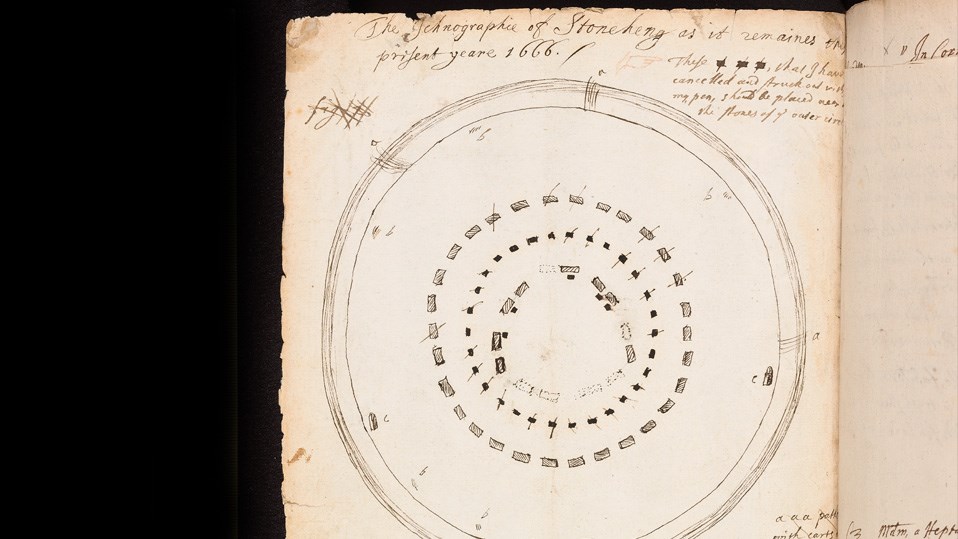 The Ichnographie of Stoneheng as it remaines this
present yeare 1666.
These , that I have
cancelled and struck out with
my pen, should be placed neer
the stones of yͤ outer circ
a
a
b
b
b
a
c
c
b
b
In Cou
a a a
with carts
(3 Mdm, a Hepta